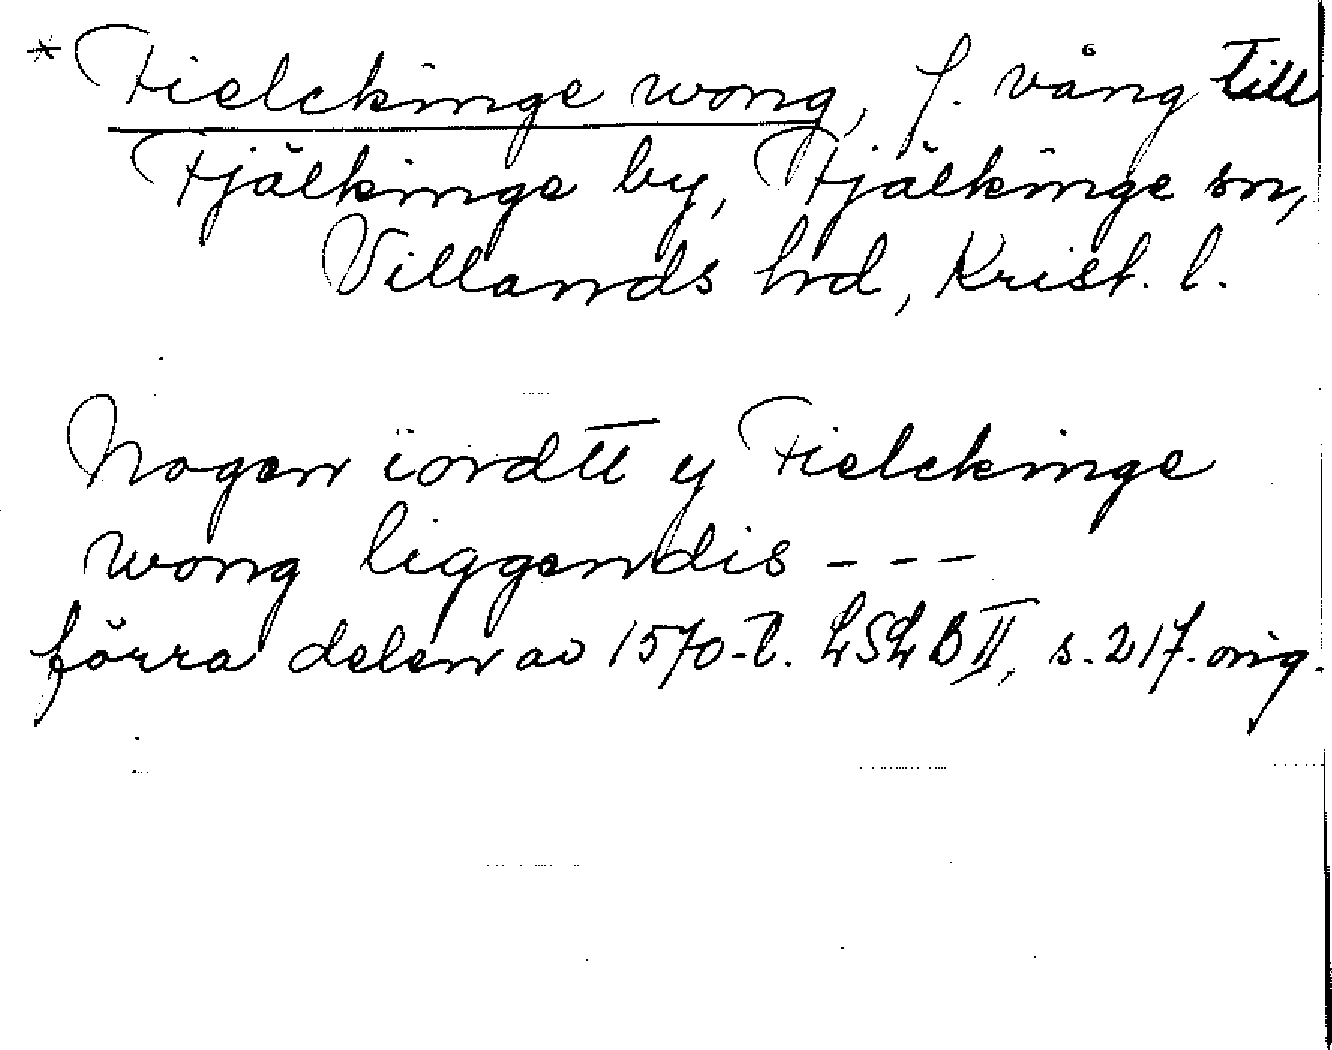 * Fielckinge wong, f. vång till
Fjälkinge by, Fjälkinge sn,
Villands hrd, Krist. l.
Nogen iordtt y Fielckinge
wong liggendis - - -
förra delen av 1570-t. LSLB II, s. 217. orig.